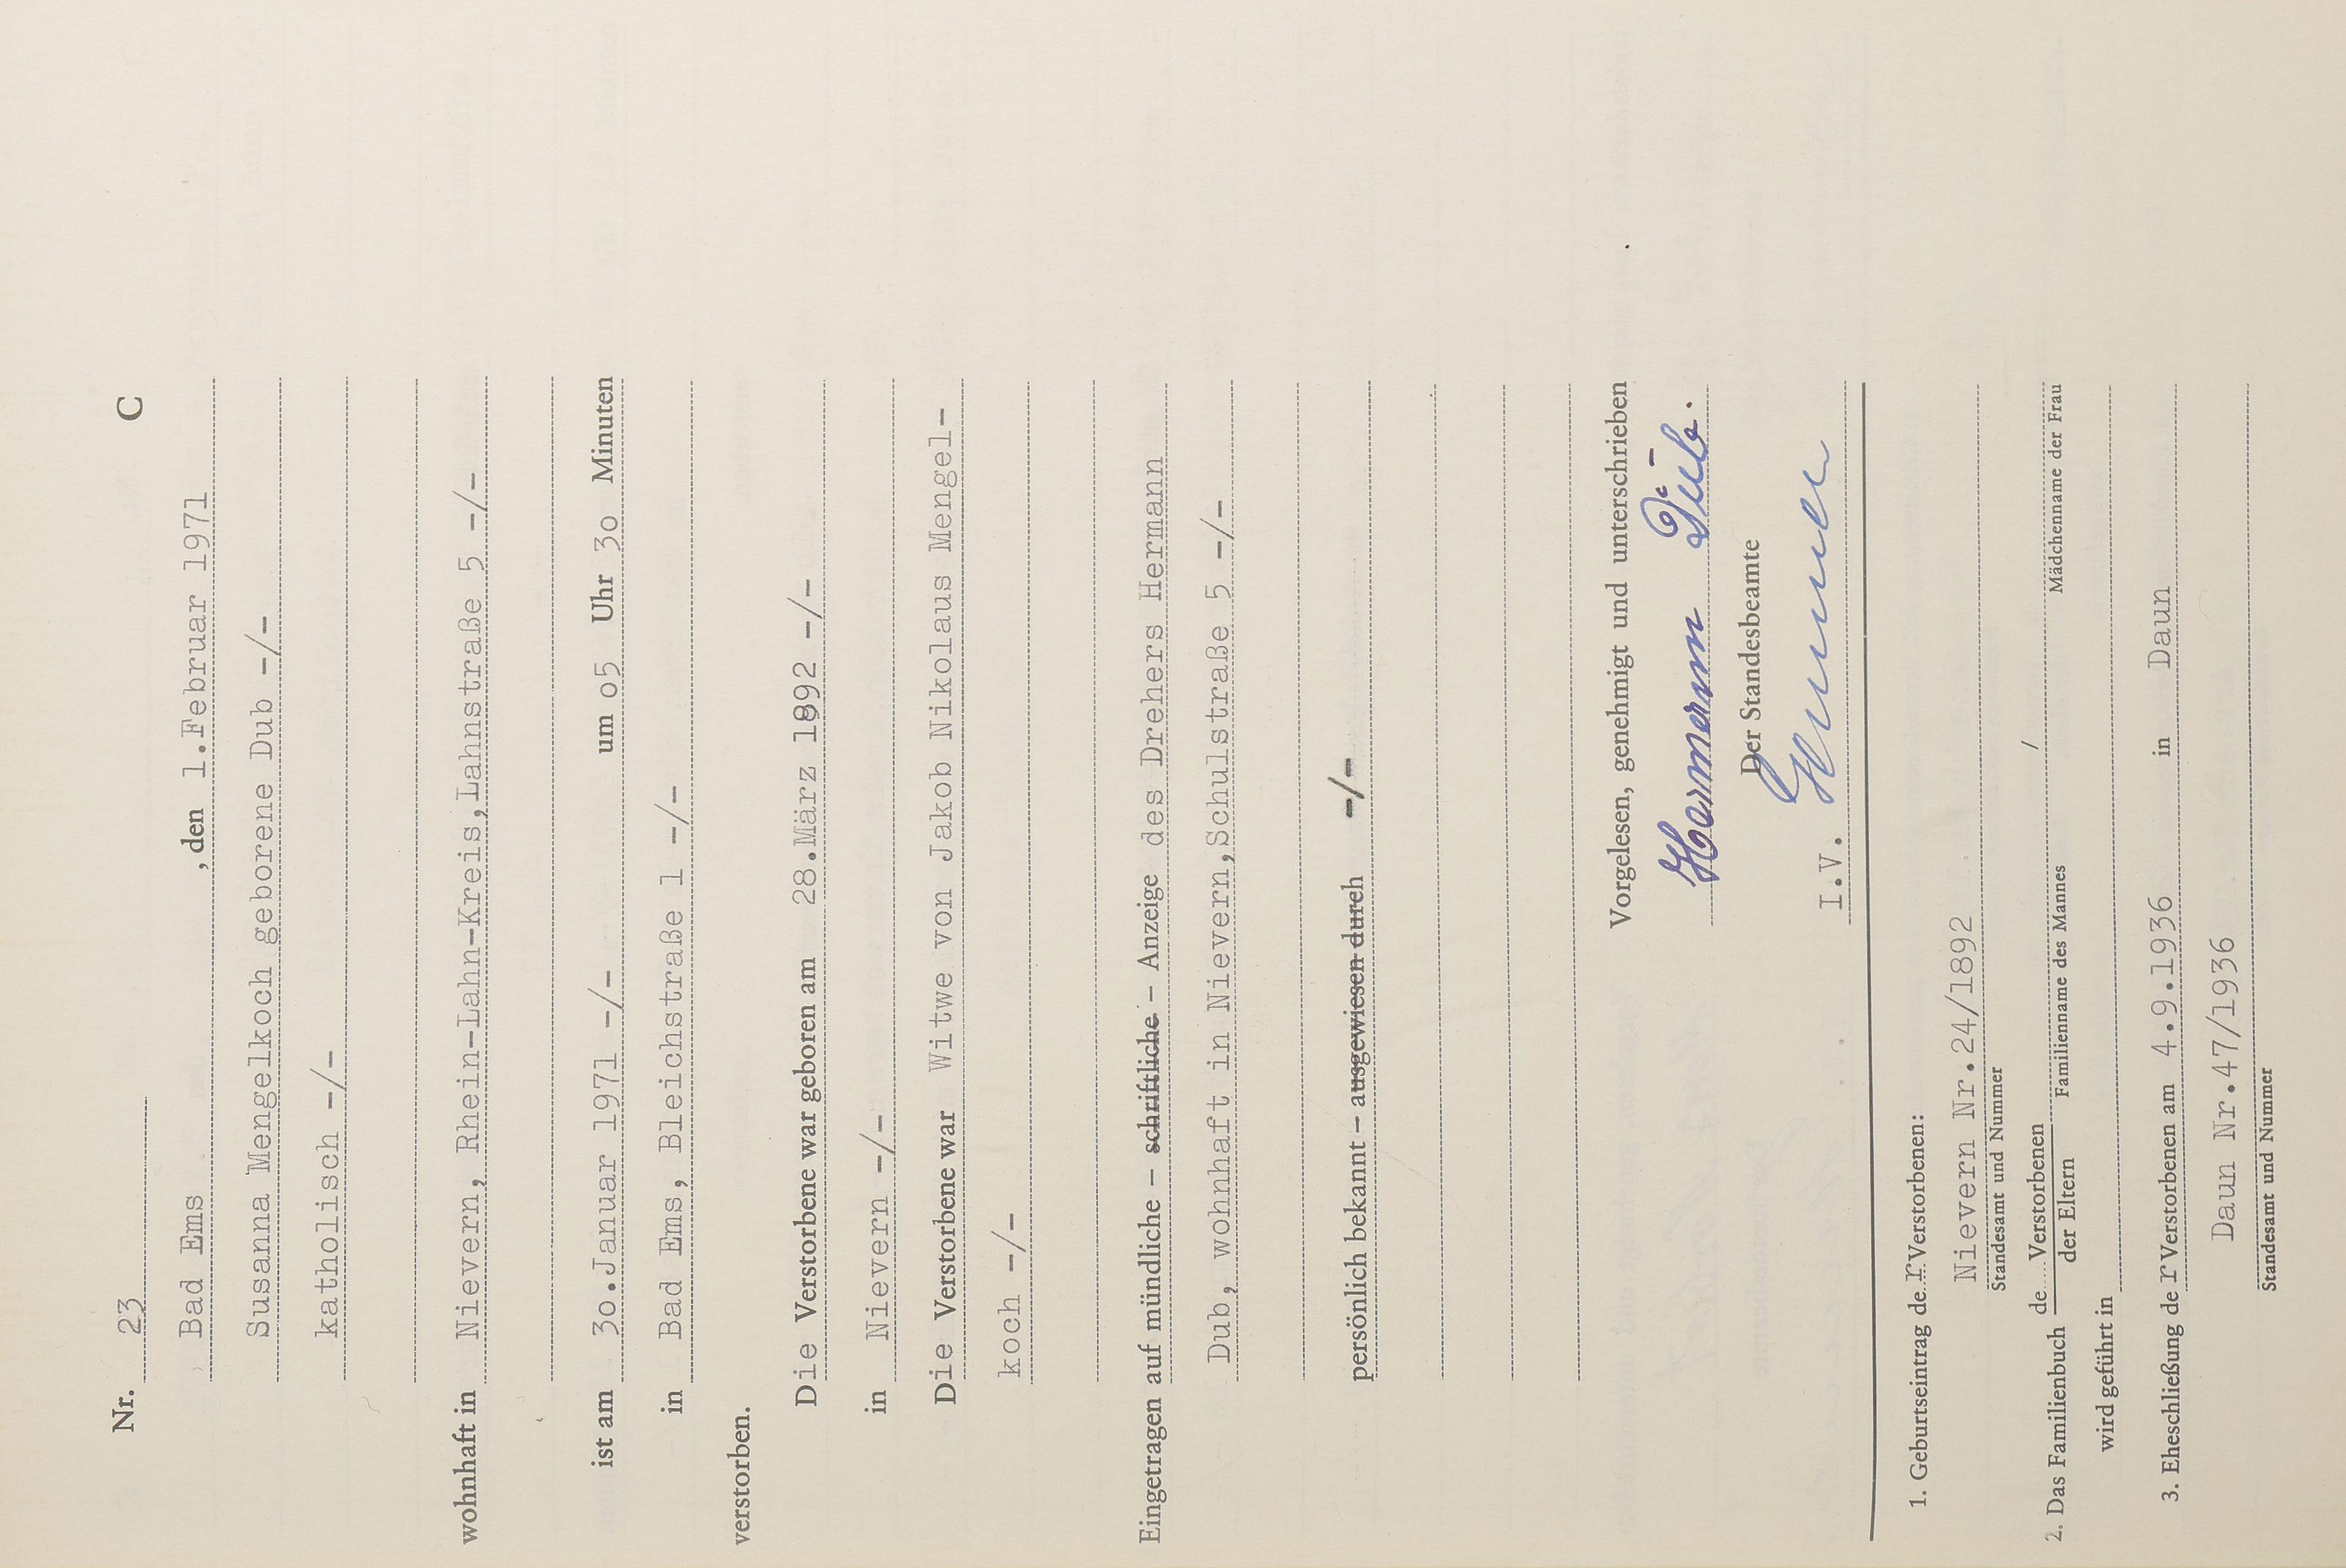 Nr. 23 C
Bad Ems , den 1.Februar 1971
Susanna Mengelkoch geborene Dub -/-
katholisch -/-
wohnhaft in Nievern, Rhein-Lahn-Kreis,Lahnstraße 5 -/-
ist am 3o.Januar 1971 -/- um o5 Uhr 3o Minuten
in Bad Ems, Bleichstraße 1 -/-
verstorben.
Die Verstorbene war geboren am 28.März 1892 -/-
in Nievern -/-
Die Verstorbene war Witwe von Jakob Nikolaus Mengel-
koch -/-
Eingetragen auf mündliche – schriftliche – Anzeige des Drehers Hermann
Dub, wohnhaft in Nievern,Schulstraße 5 -/-
persönlich bekannt – ausgewiesen durch -/-
Vorgelesen, genehmigt und unterschrieben
Hermann Dub.
Der Standesbeamte
I.V.
1. Geburtseintrag der Verstorbenen:
Nievern Nr.24/1892
Standesamt und Nummer
2. Das Familienbuch de Verstorbenen /
der Eltern Familienname des Mannes Mädchenname der Frau
wird geführt in
3. Eheschließung der Verstorbenen am 4.9.1936 in Daun
Daun Nr.47/1936
Standesamt und Nummer